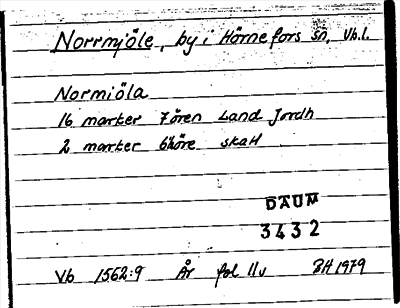 Norrmjöle, by i Hörnefors sn, Vb.l.
Normiöla
16 marker 7 ören Land Jordh
2 marker 6 öre skatt
DAUM
3432
Vb 1562:9 År fol 11v BH 1979